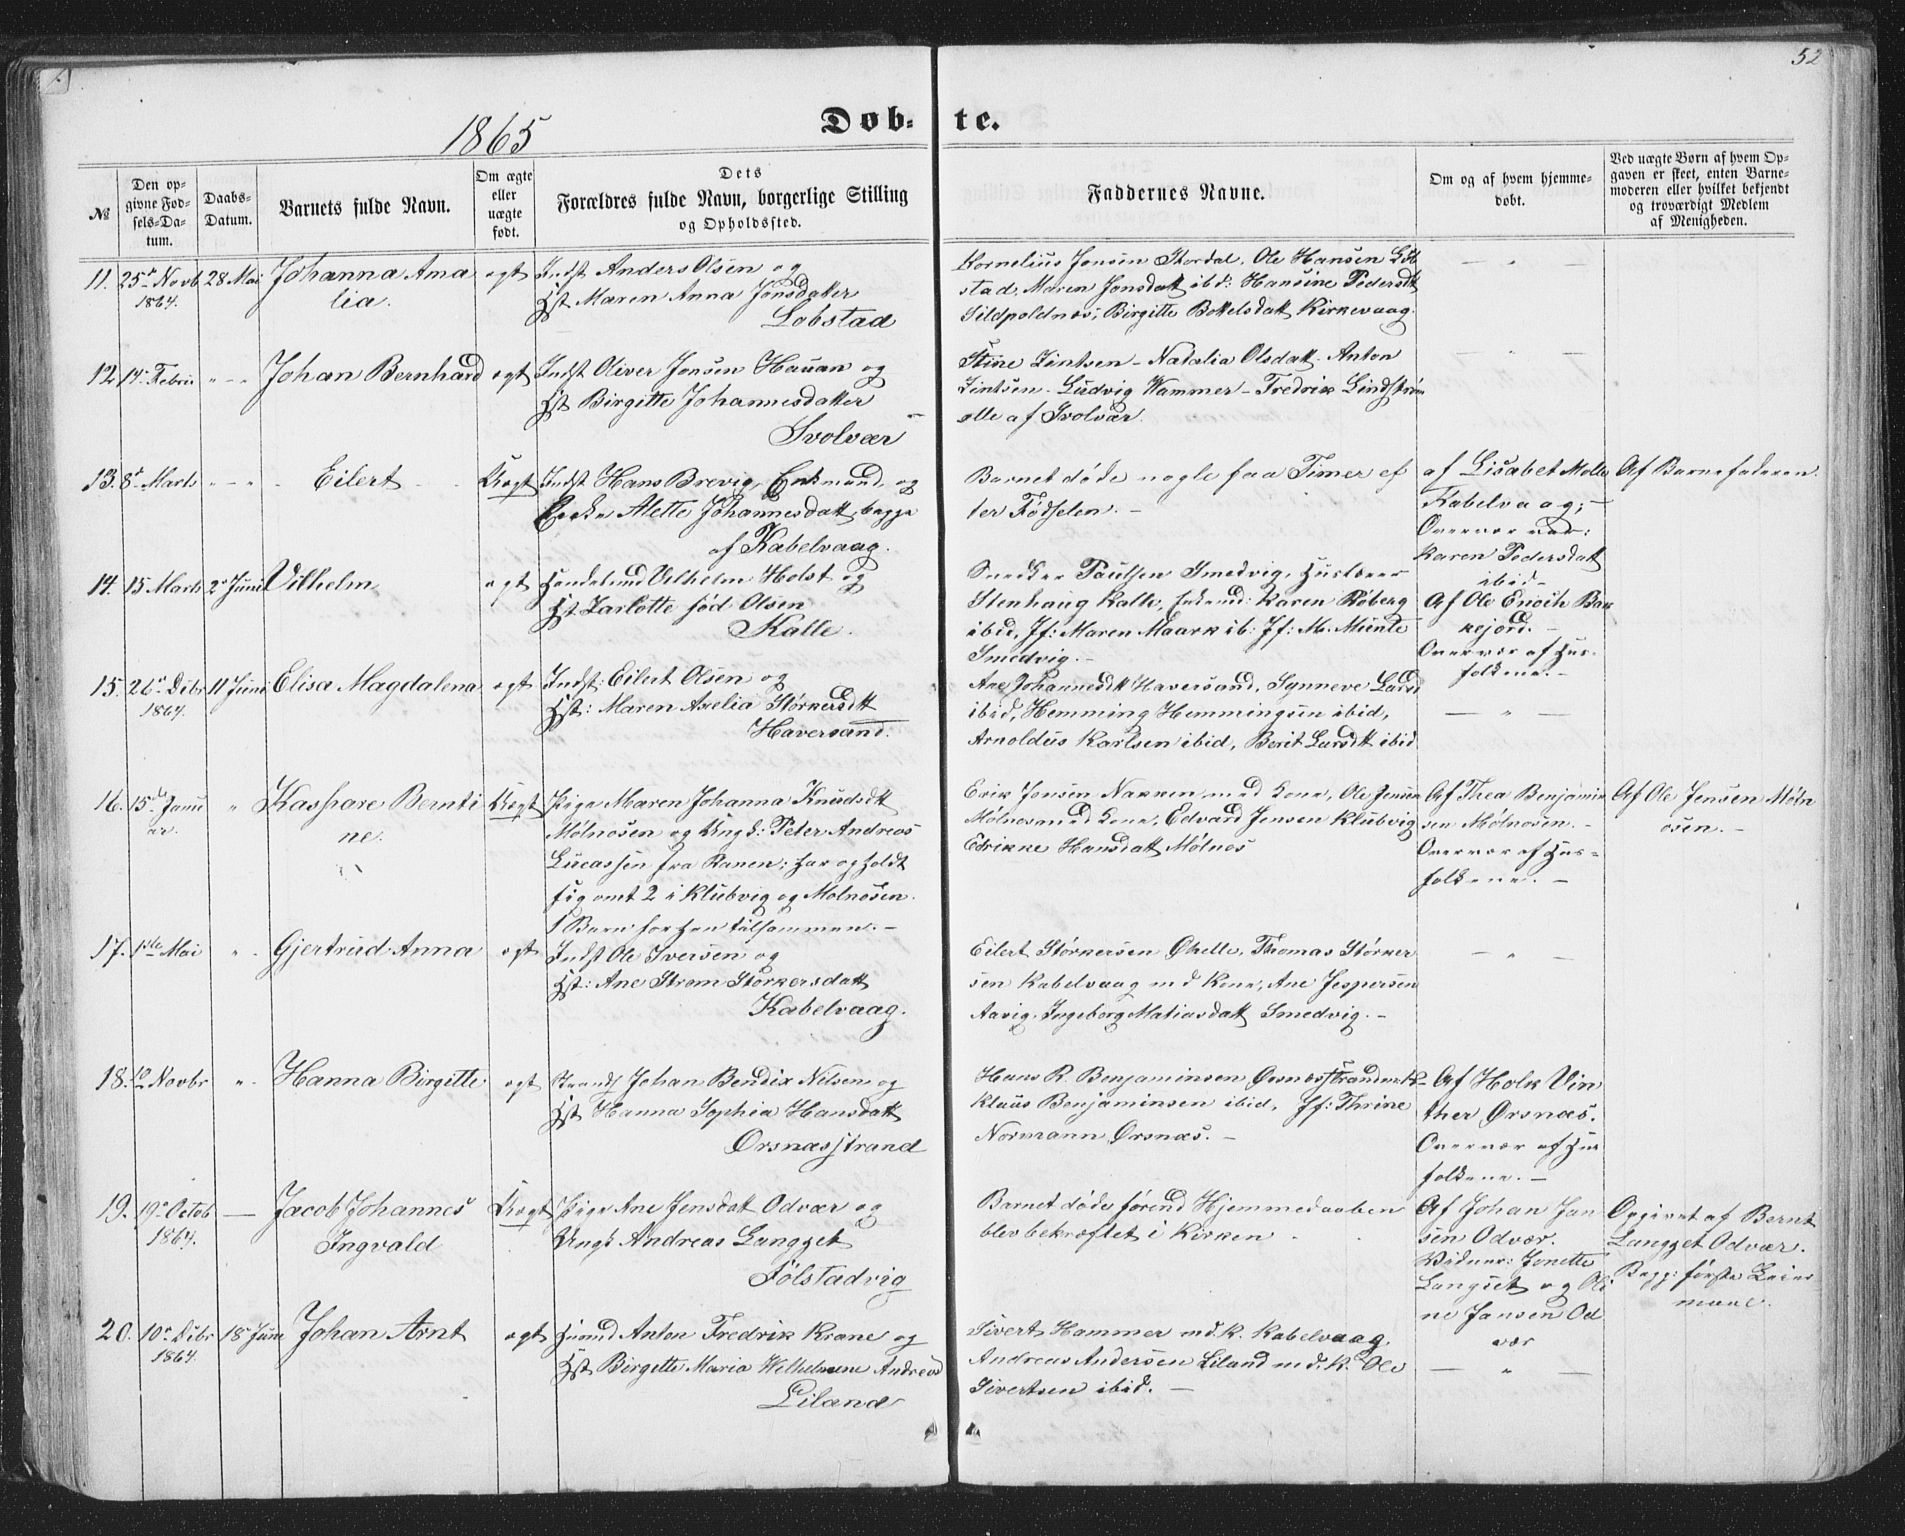 52
1865
Døb-te.
№
Den opgivne Fødsels-Datum.
Daabs-Datum.
Barnets fulde Navn.
Om ægte eller uægte født.
Dets Forældres fulde Navn, borgerlige Stilling og Opholdssted.
Faddernes Navne.
Om og af hvem hjemmedøbt.
Ved uægte Børn af hvem Opgaven er skeet, enten Barnemoderen eller hvilket bekjendt og troværdigt Medlem af Menigheden.
11. 25 Novb 1864. 28 Mai Johanna Ama
lia.
egt Indst Anders Olsen og
Hst Maren Anna Jonsdatter
Lobstad
Kornelius Jonsen Stordal, Ole Hansen Lob
stad, Maren Jonsdatt ibd: Hansine Pedersdt
Sildpoldnes; Birgitte Bottelsdatt Kirkevaag.
12. 14 Febru " Johan Bernhard egt Indst Oliver Jonsen Hauan og
Hst Birgitte Johannesdatter
Svolvær
Stine Jentsen - Natalia Olsdatt. Anton
Jentsen. Ludvig Wammer - Fredrik Lindstrøm
alle af Svolvær.
13. 8 Marts " Eilert Uegt Indst Hans Brevig, Enkmand, og
Alette Johannesdatt begge
af Kabelvaag.
Barnet døde nogle faa Timer ef
ter Fødselen. -
af Lisabet Molle
Kabelvaag; -
Overvær var:
Karen Pedersdatt
ibid -
Af Barnefaderen.
14. 15 Marts 2 Juni Vilhelm egt Handelsmd Vilhelm Holst og
Hst Zarlotte fød Olsen
Kalle.
Snedker Paulsen Smedvig, Huslærer
Stenhaug Kalle, Enkemd: Karen Roberg
ibid, Jf: Maren Maark ib: Jf: M. Münte
Smedvig. -
Af Ole Enoch Bak
kejord. -
Overvær af Hus-
folkene. -
15. 26 Dcbr 1864. 11 Juni Elisa Magdalena egt Indst: Eilert Olsen og
Hst: Maren Axelia Størkersdtt
Haversand.
Ane Johannesdtt Haversand, Synneve Larsd
ibid, Hemming Hemmingsen ibid,
Arnoldus Karlsen ibid, Berit Larsdtt ibid
16. 15 Janu
ar. " Kaspare Bernti
ne.
Uegt Pige Maren Johanna Knudsdtt
Mølnosen og Ungk: Peter Andreas
Lucassen fra Ranen; har opholdt
sig omt 2 i Klubvig og Molnosen.
1 Barn forhen tilsammen. -
Erik Jonsen Nakken med Kone, Ole Jensen
Mølnos med Kone, Edvard Jensen Klubvig
Edrikke Hansdatt Mølnos
Af Thea Benjamin
sen Mølnosen. -
Overvær af Hus-
folkene. -
Af Ole Jensen Møln
osen. -
17. 1ste Mai " Gjertrud Anna egt Indst Ole Iversen og
Hst: Ane Strøm Størkersdatt
Kabelvaag.
Eilert Størkersen Ørelle, Thomas Størker
sen Kabelvaag md Kone, Ane Jespersen
Aavig. Ingeborg Matiasdatt Smedvig. -
18. 10 Novbr " Hanna Birgitte egt Strands Johan Bendix Nilsen og
Hst Hanna Sophia Hansdatt
Ørsnæsstrand
Hans R. Benjaminsen Ørsnæsstrand m. K-
Klaus Benjaminsen ibid, Jf: Thrine
Normann Ørsnæs. -
Af Holk Vin
ther Ørsnæs.
Overvær af Hus
folkene. -
19. 19 Octob 1864. Jacob Johannes
Ingvald
Uegt Pige Ane Jensdat Odvær og
Ungk Andreas Langset
Følstadvig
Barnet døde førend Hjemmedaaben
blev bekræftet i Kirken
Af Johan Jan
sen Odvær.
Vidner: Jonette
Langset og Oli
ne Jansen Od
vær
Opgivet af Bernt
Langset Odvær.
Begg: første Leier
maal.
20. 10 Dcbr 1864. 18 Juni Johan Arnt egt Husmd Anton Fredrik Krane og
Hst Birgitte Maria Welhelmine Andreasd
Liland
Sivert Hammer md. K. Kabelvaag.
Andreas Andersen Liland md. K. Ole
Sivertsen ibid. -